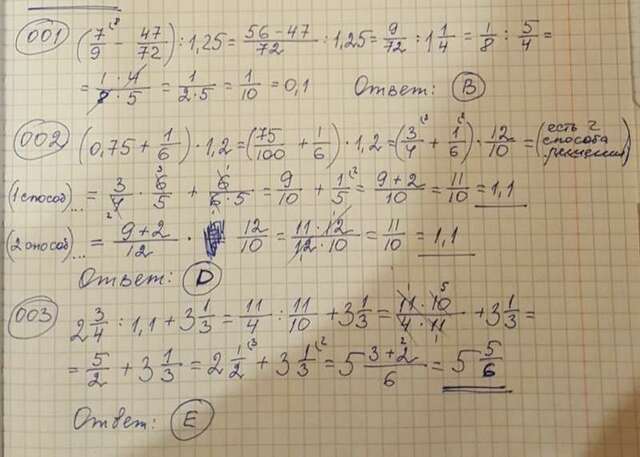 001) (7/9 - 47/72) : 1,25 = 56-47/72 : 1,25 = 9/72 : 1 1/4 = 1/8 : 5/4 =
= 1·4/8·5 = 1/2·5 = 1/10 = 0,1 Ответ: B
002) (0,75 + 1/6) · 1,2 = (75/100 + 1/6) · 1,2 = (3/4 + 1/6) · 12/10 = (есть 2 способа решения)
(1 способ)... = 3/4 · 6/5 + 6/6·5 = 9/10 + 1/5 = 9+2/10 = 11/10 = 1,1
(2 способ)... = 9+2/12 · 12/10 = 11·12/12·10 = 11/10 = 1,1
Ответ: D
003) 2 3/4 : 1,1 + 3 1/3 = 11/4 : 11/10 + 3 1/3 = 11·10/4·11 + 3 1/3 =
= 5/2 + 3 1/3 = 2 1/2 + 3 1/3 = 5 3+2/6 = 5 5/6
Ответ: E